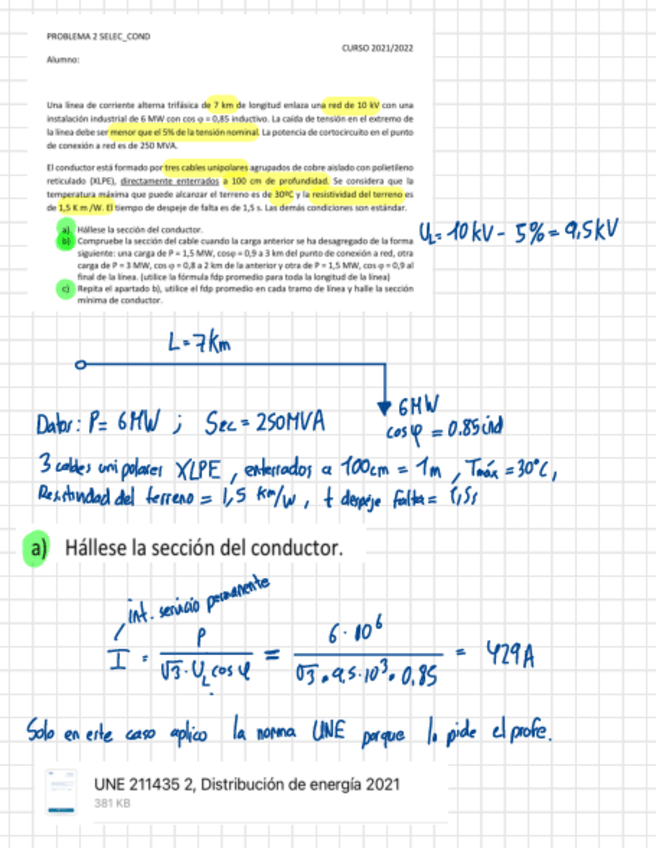 PROBLEMA 2 SELEC_COND
CURSO 2021/2022
Alumno:
Una línea de corriente alterna trifásica de 7 km de longitud enlaza una red de 10 kV con una
instalación industrial de 6 MW con cos φ = 0,85 inductivo. La caída de tensión en el extremo de
la línea debe ser menor que el 5% de la tensión nominal. La potencia de cortocircuito en el punto
de conexión a red es de 250 MVA.
El conductor está formado por tres cables unipolares agrupados de cobre aislado con polietileno
reticulado (XLPE), directamente enterrados a 100 cm de profundidad. Se considera que la
temperatura máxima que puede alcanzar el terreno es de 30ºC y la resistividad del terreno es
de 1,5 K m /W. El tiempo de despeje de falta es de 1,5 s. Las demás condiciones son estándar.
a) Hállese la sección del conductor.
b) Compruebe la sección del cable cuando la carga anterior se ha desagregado de la forma
siguiente: una carga de P = 1,5 MW, cosφ = 0,9 a 3 km del punto de conexión a red, otra
carga de P = 3 MW, cos φ = 0,8 a 2 km de la anterior y otra de P = 1,5 MW, cos φ = 0,9 al
final de la línea. (utilice la fórmula fdp promedio para toda la longitud de la línea)
c) Repita el apartado b), utilice el fdp promedio en cada tramo de línea y halle la sección
mínima de conductor.
UL = 10 kV - 5% = 9.5 kV
L = 7 Km
6 MW
cos φ = 0.85 ind
Datos: P = 6 MW ; Scc = 250 MVA
3 cables unipolares XLPE, enterrados a 100cm = 1m, Tmáx = 30°C,
Resistividad del terreno = 1,5 Km/W, t despeje falta = 1,5s
a) Hállese la sección del conductor.
int. servicio permanente
I = P / √3 · UL cos φ = 6 · 10^6 / √3 · 9.5 · 10^3 · 0,85 = 429 A
Solo en este caso aplico la norma UNE porque lo pide el profe.
UNE 211435 2, Distribución de energía 2021
381 KB